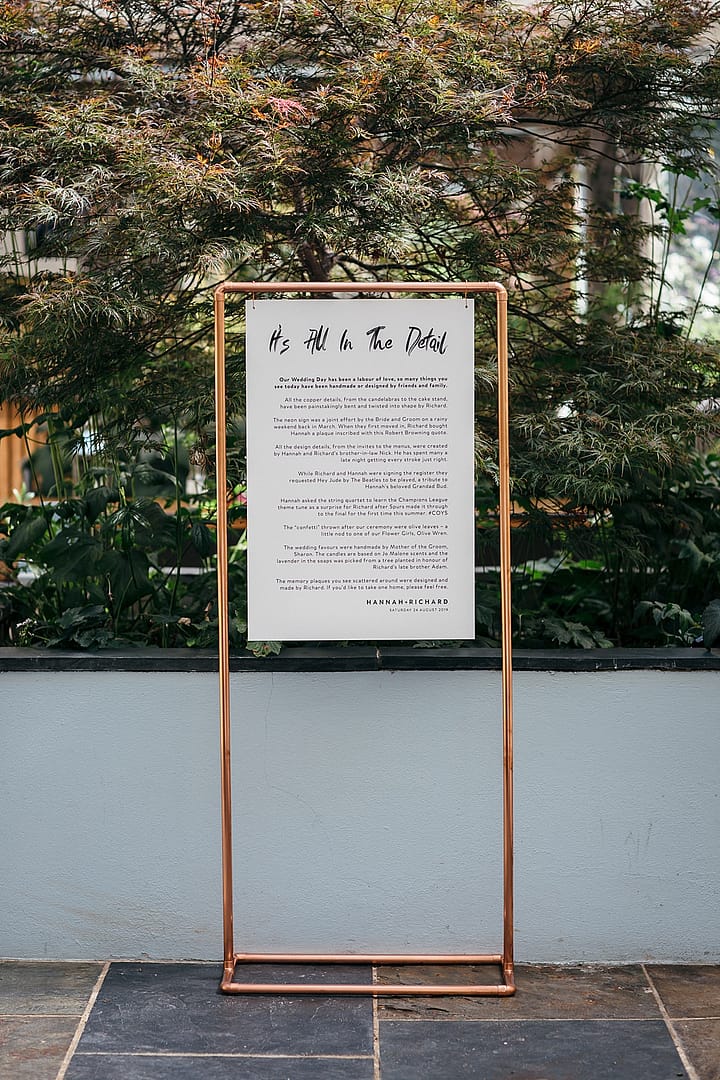 It's All In The Detail
Our Wedding Day has been a labour of love, so many things you
see today have been handmade or designed by friends and family.
All the copper details, from the candelabras to the cake stand,
have been painstakingly bent and twisted into shape by Richard.
The neon sign was a joint effort by the Bride and Groom on a rainy
weekend back in March. When they first moved in, Richard bought
Hannah a plaque inscribed with this Robert Browning quote.
All the design details, from the invites to the menus, were created
by Hannah and Richard's brother-in-law Nick. He has spent many a
late night getting every stroke just right.
While Richard and Hannah were signing the register they
requested Hey Jude by The Beatles to be played, a tribute to
Hannah's beloved Grandad Bud.
Hannah asked the string quartet to learn the Champions League
theme tune as a surprise for Richard after Spurs made it through
to the final for the first time this summer. #COYS
The "confetti" thrown after our ceremony were olive leaves – a
little nod to one of our Flower Girls, Olive Wren.
The wedding favours were handmade by Mother of the Groom,
Sharon. The candles are based on Jo Malone scents and the
lavender in the soaps was picked from a tree planted in honour of
Richard's late brother Adam.
The memory plaques you see scattered around were designed and
made by Richard. If you'd like to take one home, please feel free.
HANNAH+RICHARD
SATURDAY 24 AUGUST 2019